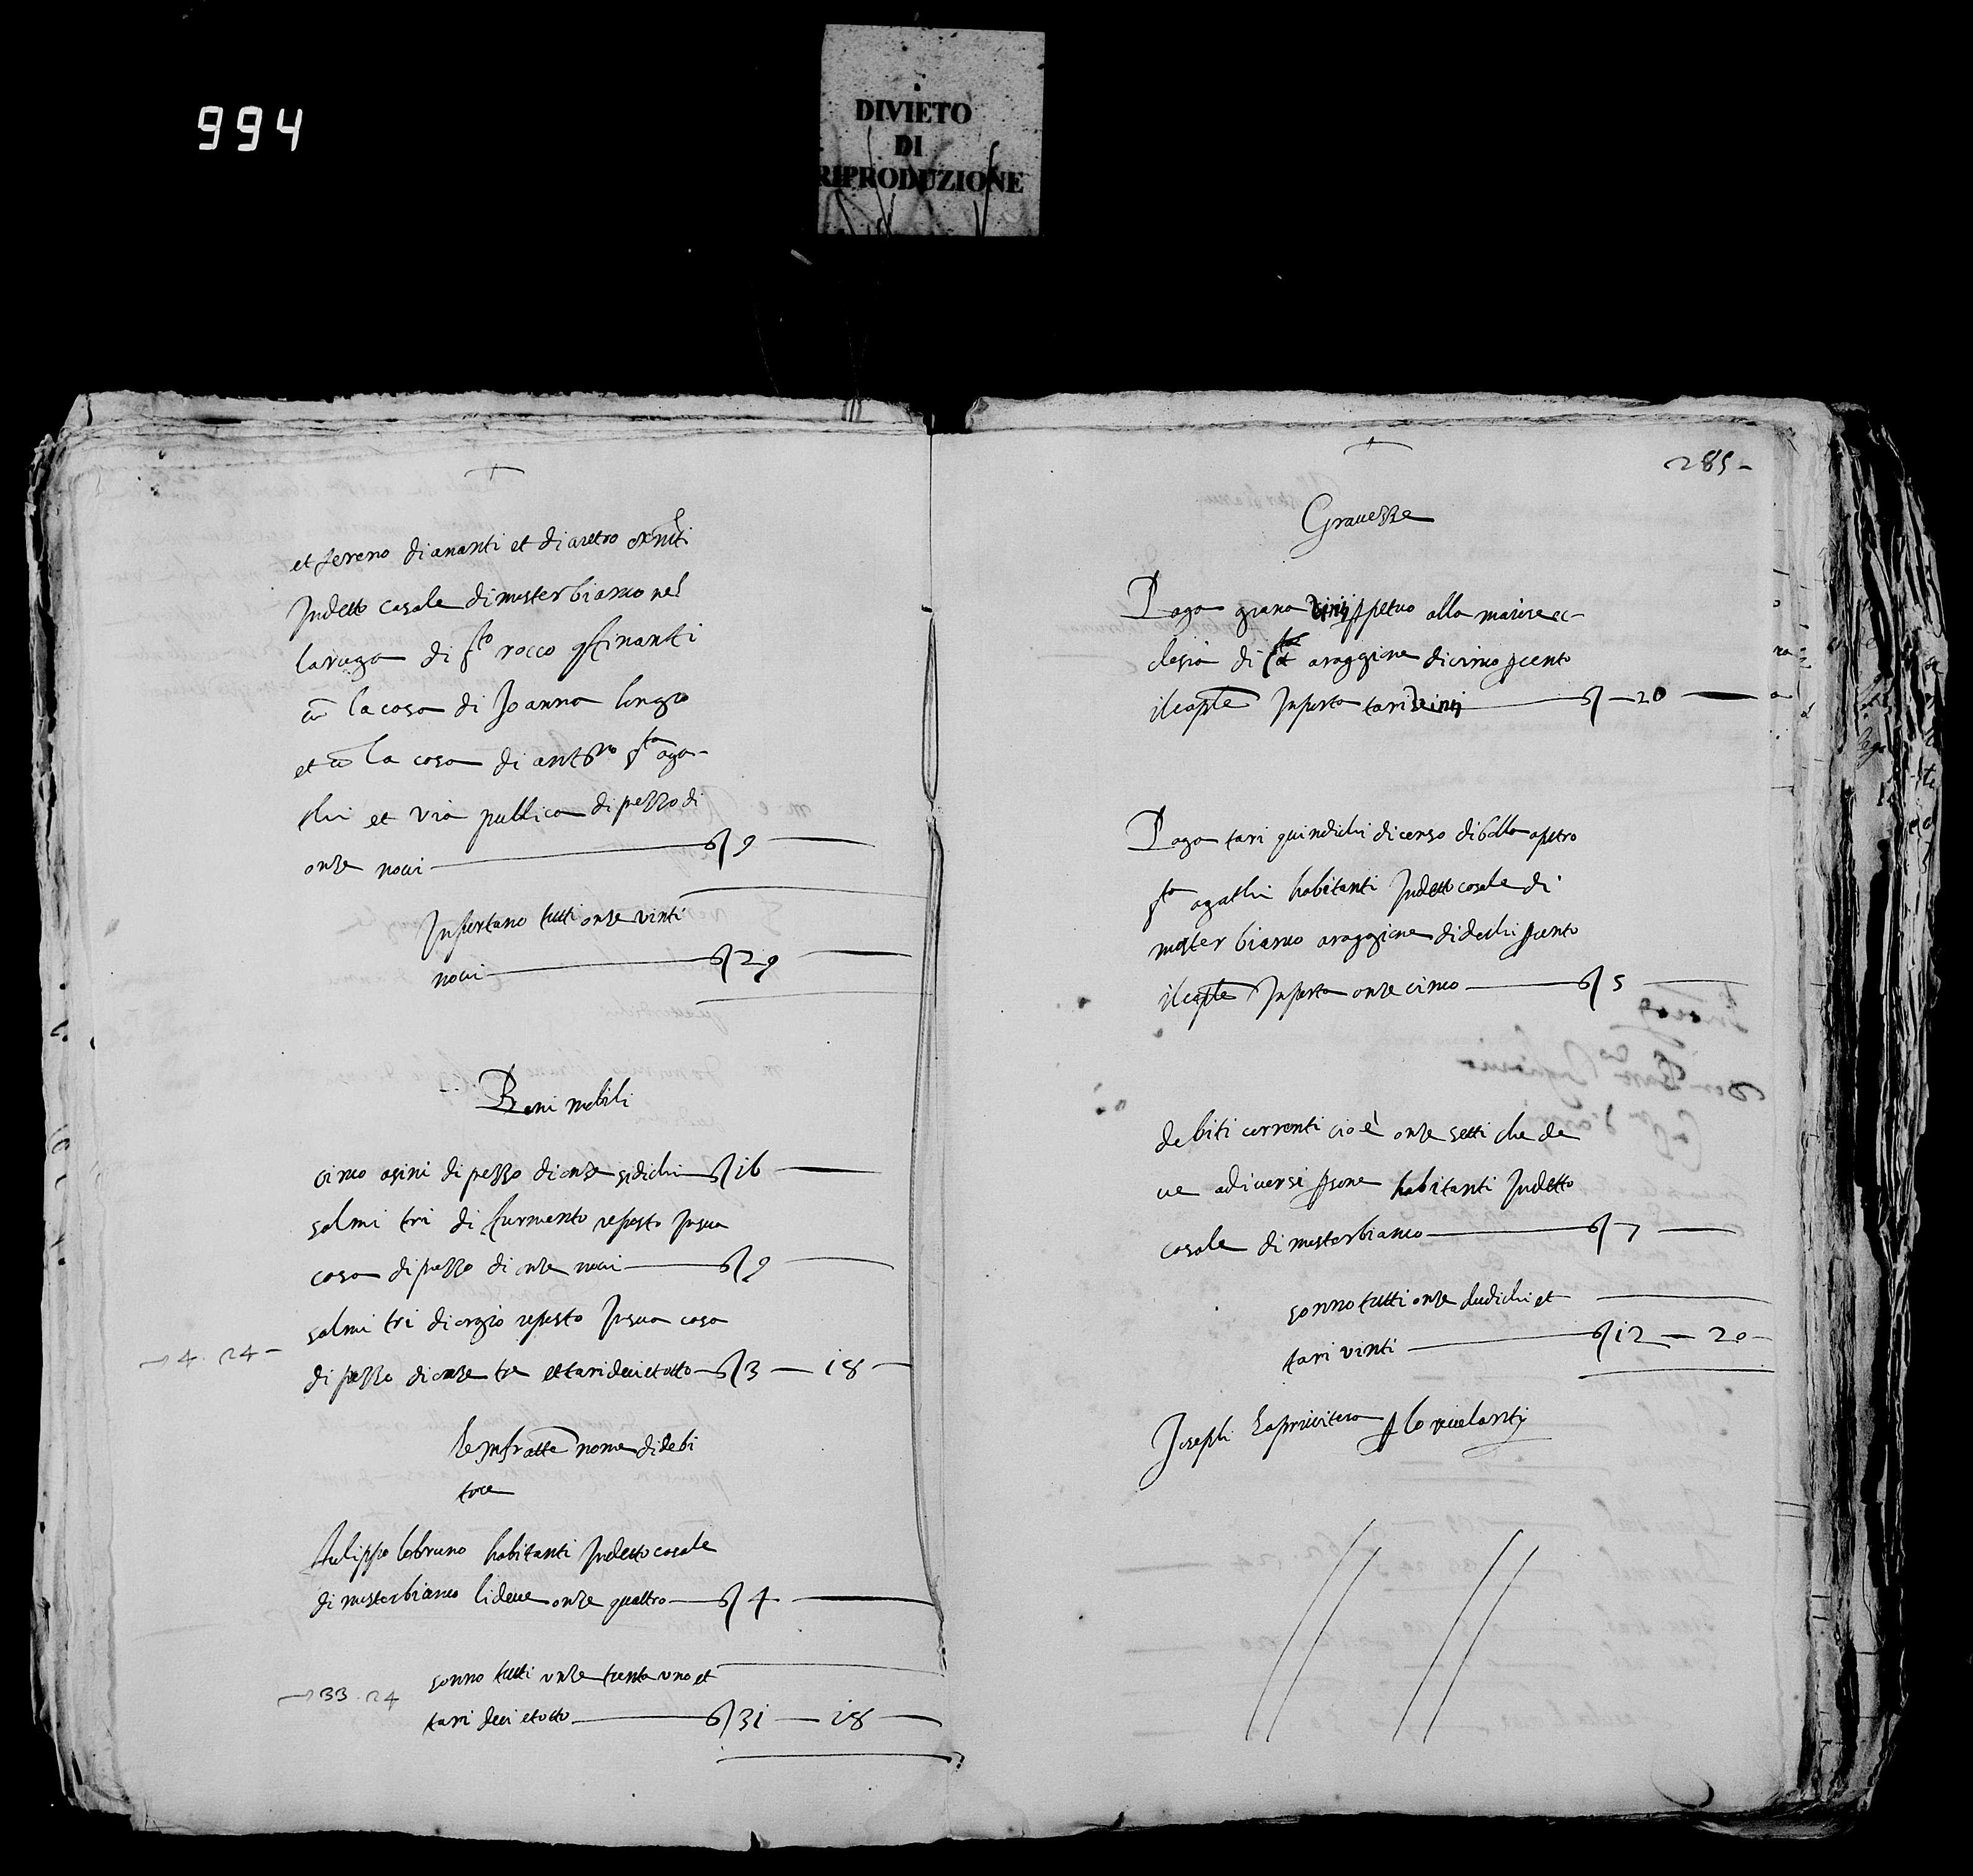 994
DIVIETO
DI
RIPRODUZIONE
et tereno dinanti et diarretro existenti
Indetto casale dimisterbianco nel
laruga di sto rocco cōfinanti
cū la casa di Joanna longo
et cū la casa di antno sta aga-
thi et via publica di pezzo di
onze novi ——— 9
Inportano tutti onze vinti
novi ——— 29
Beni mobili
cinco asini di pezzo dionze sidichi — 16 —
salmi tri di furmento reposto Insua
casa di pezzo di onze novi — 9 —
salmi tri diorgio reposto Insua casa
4. 24 -
di pezzo dionze tre et tari deciotto — 3 — 18 —
le Infratte nome didebi
tore
filippo lobruno habitanti Indetto casale
di misterbianco lideve onze quattro — 4 —
sonno tutti onze trenta uno et
33. 24
tari deci etotto — 31 — 18 —
285 -
Gravezze
Paga grana ppetuo alla maiure ec-
clesia di araggione dicinco pcento
il caple Inporta tari — 20 —
Paga tari quindichi dicenso dibolla apetro
sta agathi habitanti Indetto casale di
misterbianco araggione didechi pcento
ilcaple Inporta onze cinco — 5 —
debiti correnti cioè onze setti che de
ve adiversi psone habitanti Indetto
casale di misterbianco — 7 —
sonno tutti onze dudichi et
tari vinti — 12 — 20 -
Joseph Laprivitera p lo rivelanti